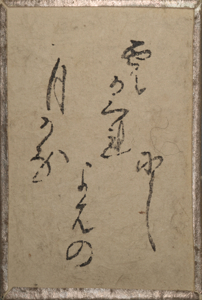 雲かくれ
にし
よはの
月かな